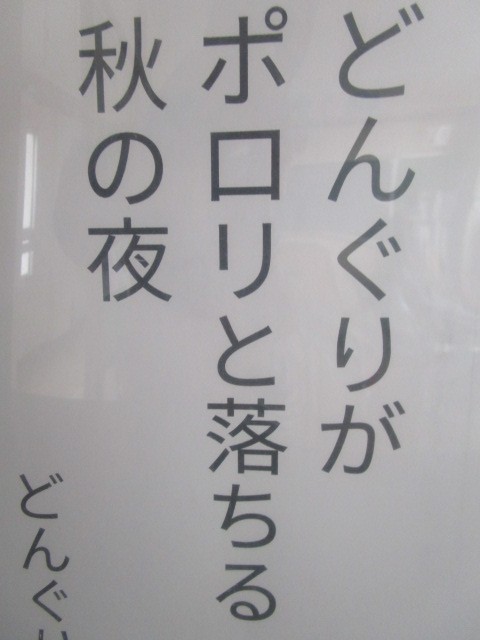 どんぐりが
ポロリと落ちる
秋の夜
どんぐり